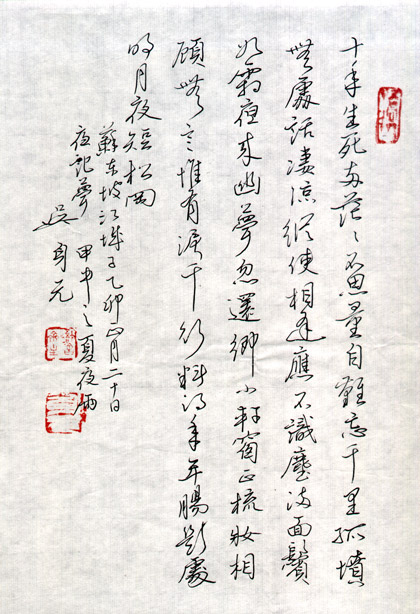 十年生死兩茫〻不思量自難忘千里孤墳
無處話凄涼縱使相逢應不識塵滿面鬢
如霜夜來幽夢忽還鄉小軒窗正梳妝相
顧無言惟有淚千行料得年年腸斷處
明月夜短松岡
蘇東坡江城子乙卯正月二十日
夜記夢 甲申之夏夜雨
吳 元